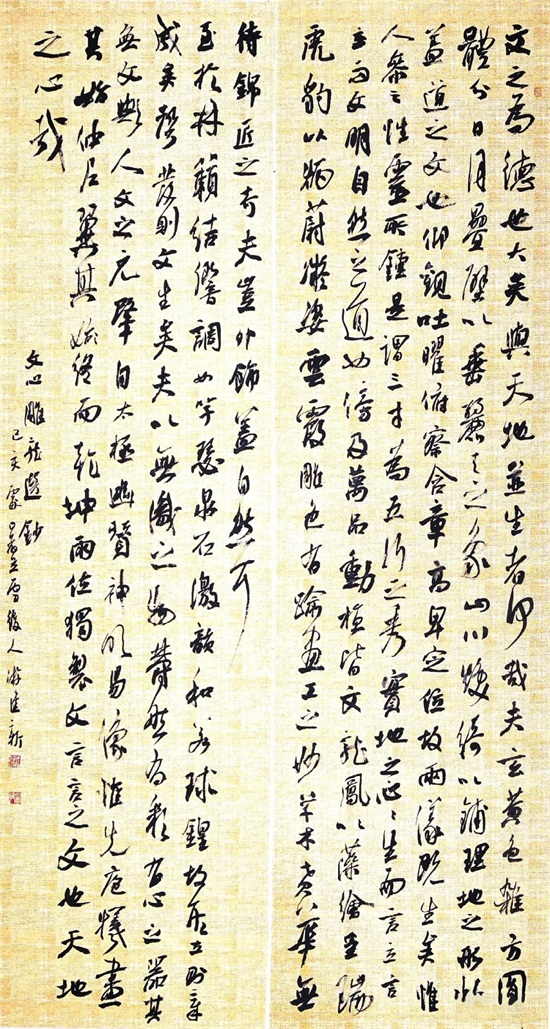 文之為德也大矣與天地並生者何哉夫玄黃色雜方圓
體分日月疊璧以垂麗天之象山川煥綺以鋪理地之形此
蓋道之文也仰觀吐曜俯察含章高卑定位故兩儀既生矣惟
人參之性靈所鍾是謂三才為五行之秀實地之心々生而言立言
立而文明自然之道也傍及萬品動植皆文龍鳳以藻繪呈瑞
虎豹以炳蔚凝姿雲霞雕色有踰畫工之妙草木賁華無
待錦匠之奇夫豈外飾蓋自然耳
至於林籟結響調如竽瑟泉石激韻和若球鍠故形立則章
成矣聲發則文生矣夫以無識之物鬱然有彩有心之器其
無文歟人文之元肇自太極幽贊神明易象惟先庖犧畫
其始仲尼翼其始終而乾坤兩位獨製文言言之文也天地
之心哉
文心雕龍選鈔
己亥夏
後人游建新